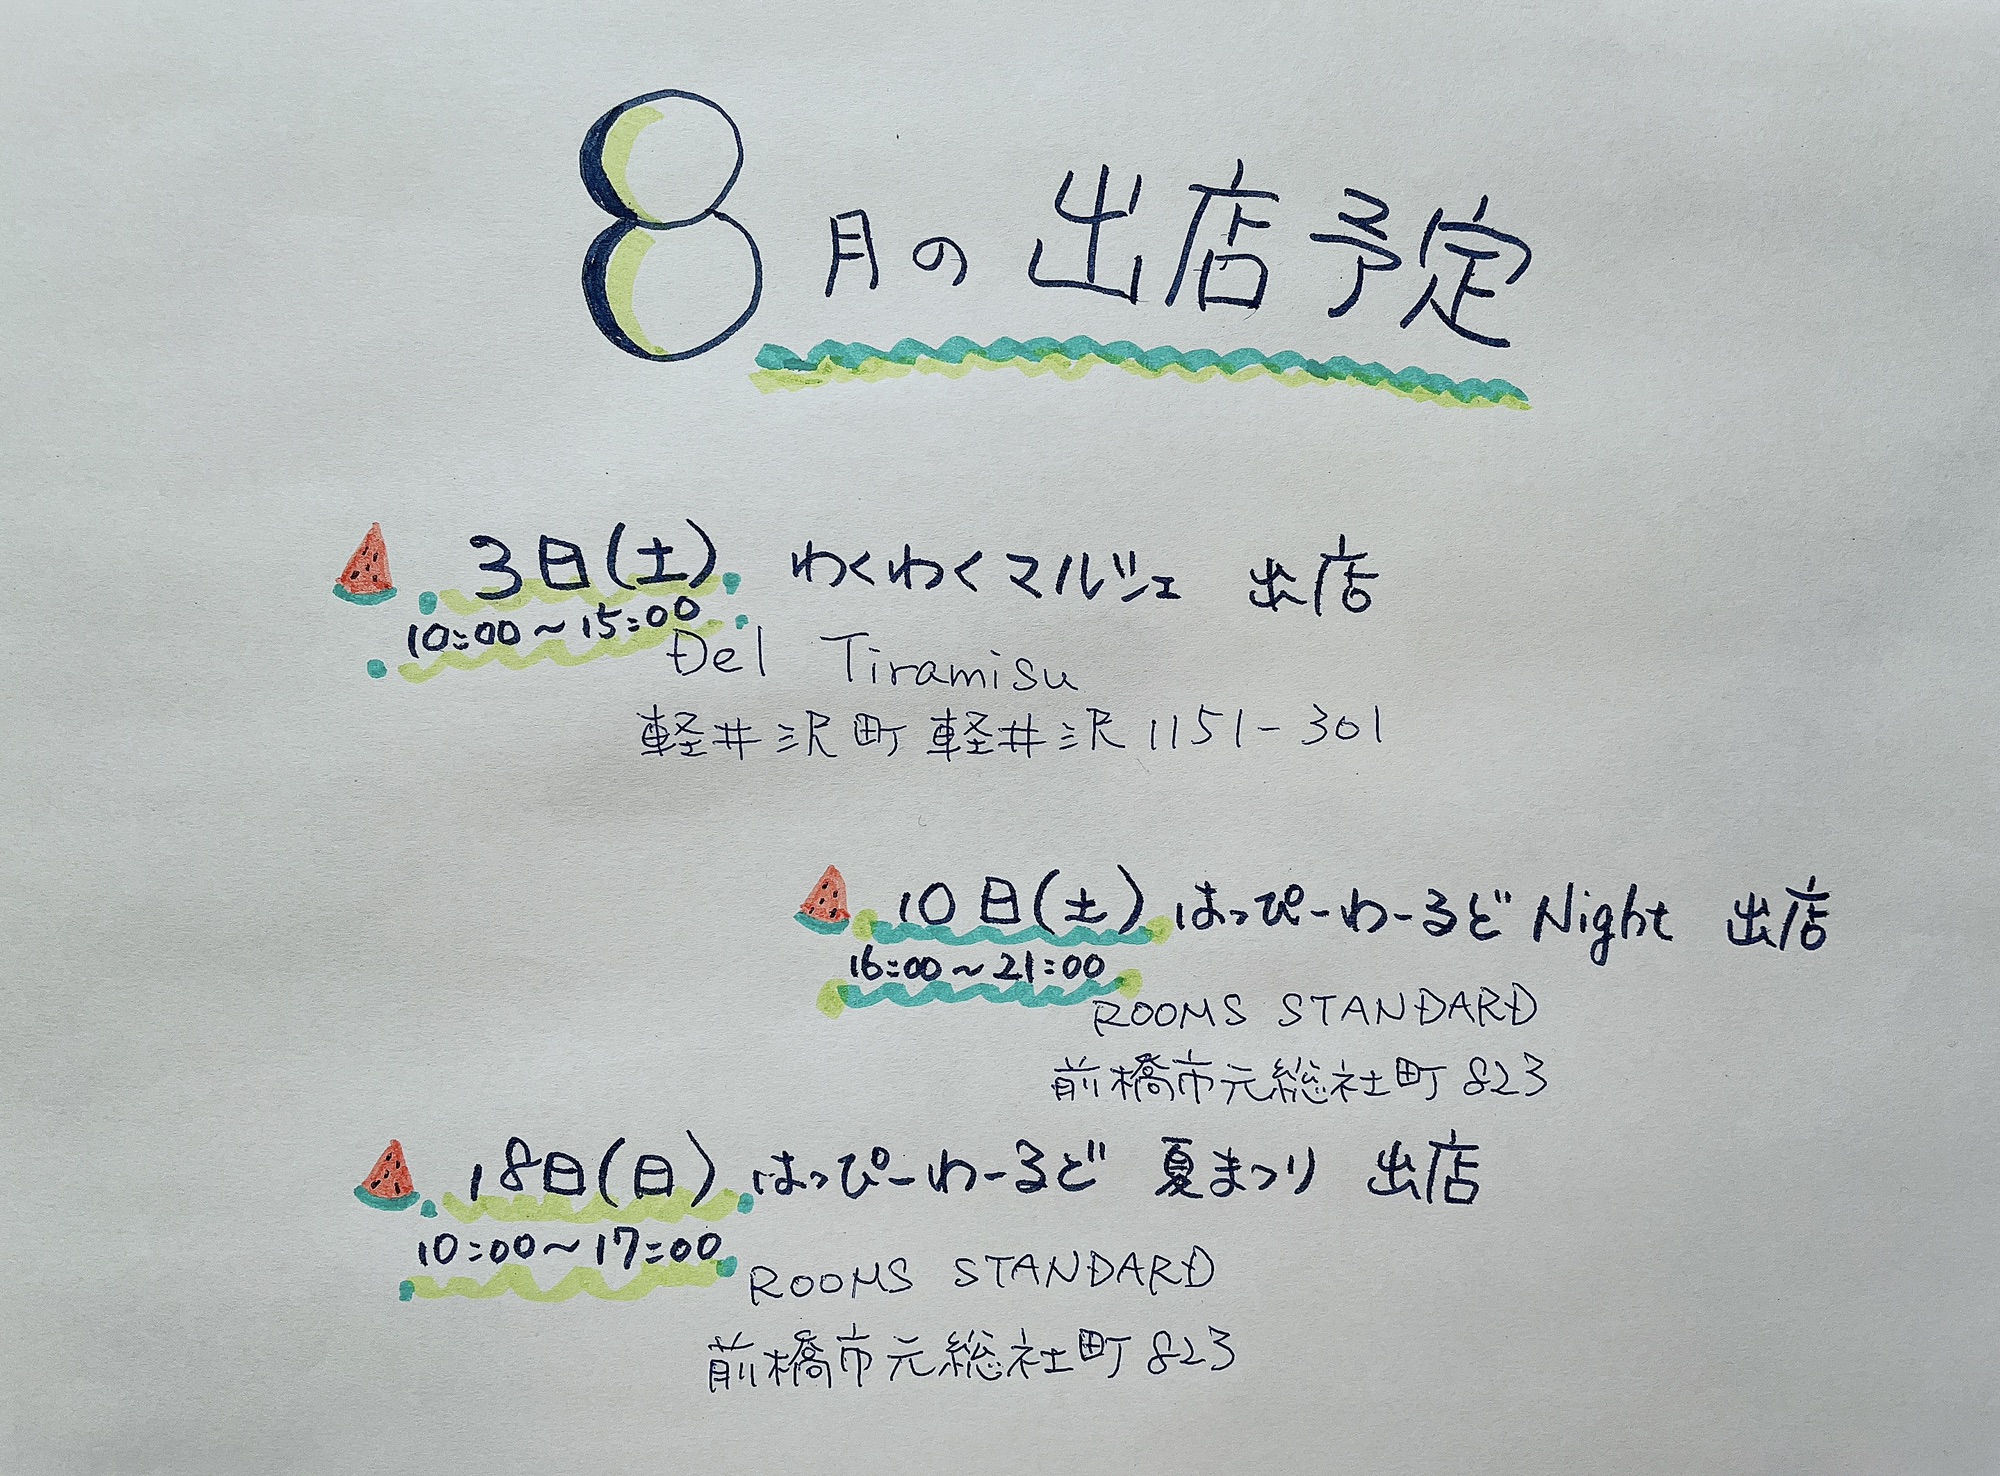 8月の出店予定
3日(土) わくわくマルシェ 出店
10:00~15:00
Del Tiramisu
軽井沢町軽井沢1151-301
10日(土) はっぴーわーるどNight 出店
16:00~21:00
ROOMS STANDARD
前橋市元総社町823
18日(日) はっぴーわーるど 夏まつり 出店
10:00~17:00
ROOMS STANDARD
前橋市元総社町823